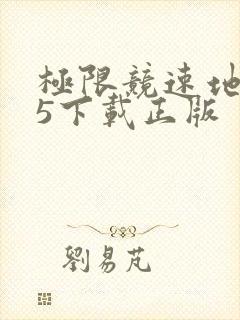 極限競速地
5下載正版
劉易芃